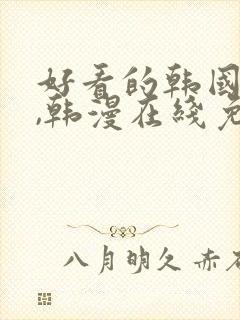 好看的韩国
,韩漫在线免
八月明久 赤石